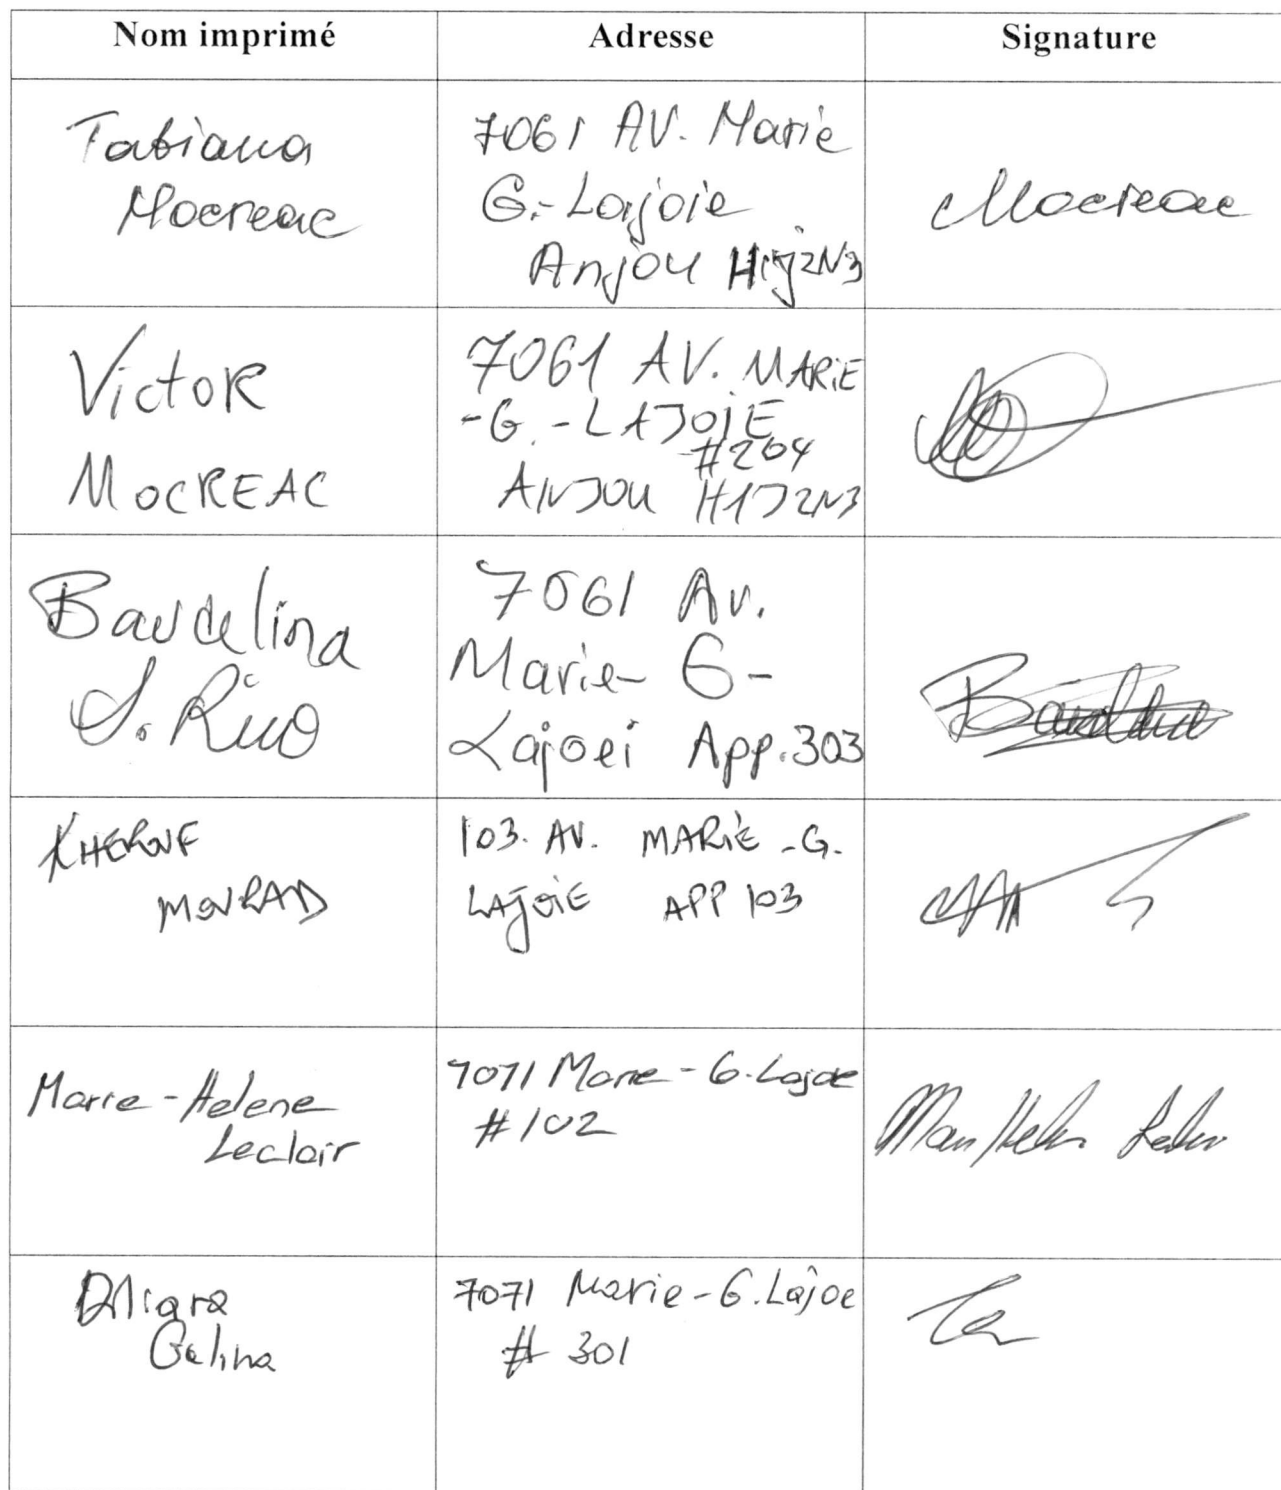 Nom imprimé
Adresse
Signature
Tatiana
Mocreac
7061 AV. Marie
G.-Lajoie
Anjou H1J2N3
Mocreac
Victor
MOCREAC
7061 AV. MARiE
-G.-LAJOIE
#204
ANJOU H1J2N3
Baudelina
S. Rico
7061 Av.
Marie- G-
Lajoei App.303
KHEROUF
MOURAD
103. AV. MARiE -G.
LAJOIE APP 103
Marie-Helene
Leclair
7071 Marie-G.Lajoie
#102
Galina
7071 Marie-G.Lajoe
# 301